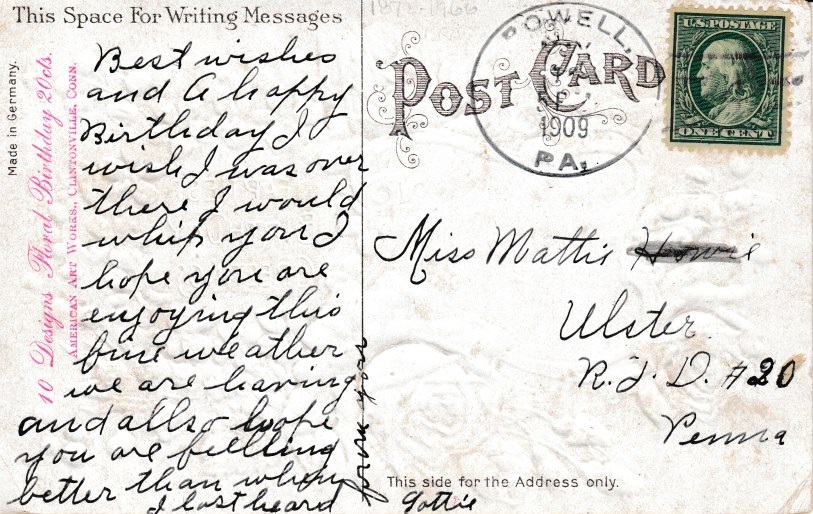 This Space For Writing Messages
Made in Germany.
10 Designs Floral Birthday 20cts.
AMERICAN ART WORKS., CLINTONVILLE, CONN.
Best wishes
and A happy
Birthday I
wish I was over
there I would
whip you I
hope you are
enjoying this
fine weather
we are having
and allso hope
you are feelling
better than when
I last heard
from you
Gottie
1872-1966
POST CARD
POWELL,
1909
PA.
U.S. POSTAGE
ONE CENT
Miss Mattie
Ulster
R.F.D. #20
Penna
This side for the Address only.